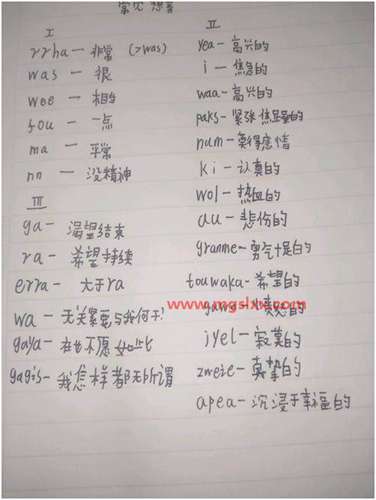 常见
I
rrha — 非常 (>was)
was — 很
wee — 相当
fou — 一点
ma — 平常
nn — 没精神
III
ga — 渴望结束
ra — 希望持续
erra — 大于ra
wa — 无关紧要与我何干!
gaya — 在也不愿如此
gagis — 我怎样都无所谓
II
yea — 高兴的
i — 焦急的
waa — 高兴的
paks — 紧张焦虑的
num — 莫得感情
ki — 认真的
wol — 热血的
au — 悲伤的
granme — 勇气十足的
touwaka — 希望的
jyel — 寂寞的
zweie — 真挚的
apea — 沉浸于幸福的